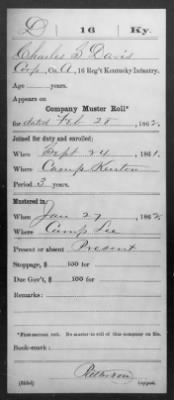 D | 16 | Ky.
Charles S Davis
Corp, Co. A, 16 Reg't Kentucky Infantry.
Age years.
Appears on
Company Muster Roll*
for dated Feb 28, 1862.
Joined for duty and enrolled:
When Sept 24, 1861.
Where Camp Kenton
Period 3 years.
Mustered in:
When Jan 27, 1862
Where Camp Lee
Present or absent Present
Stoppage, $ 100 for
Due Gov't, $ 100 for
Remarks:
*First muster roll. No muster-in roll of this company on file.
Book mark:
(358d) Copyist.